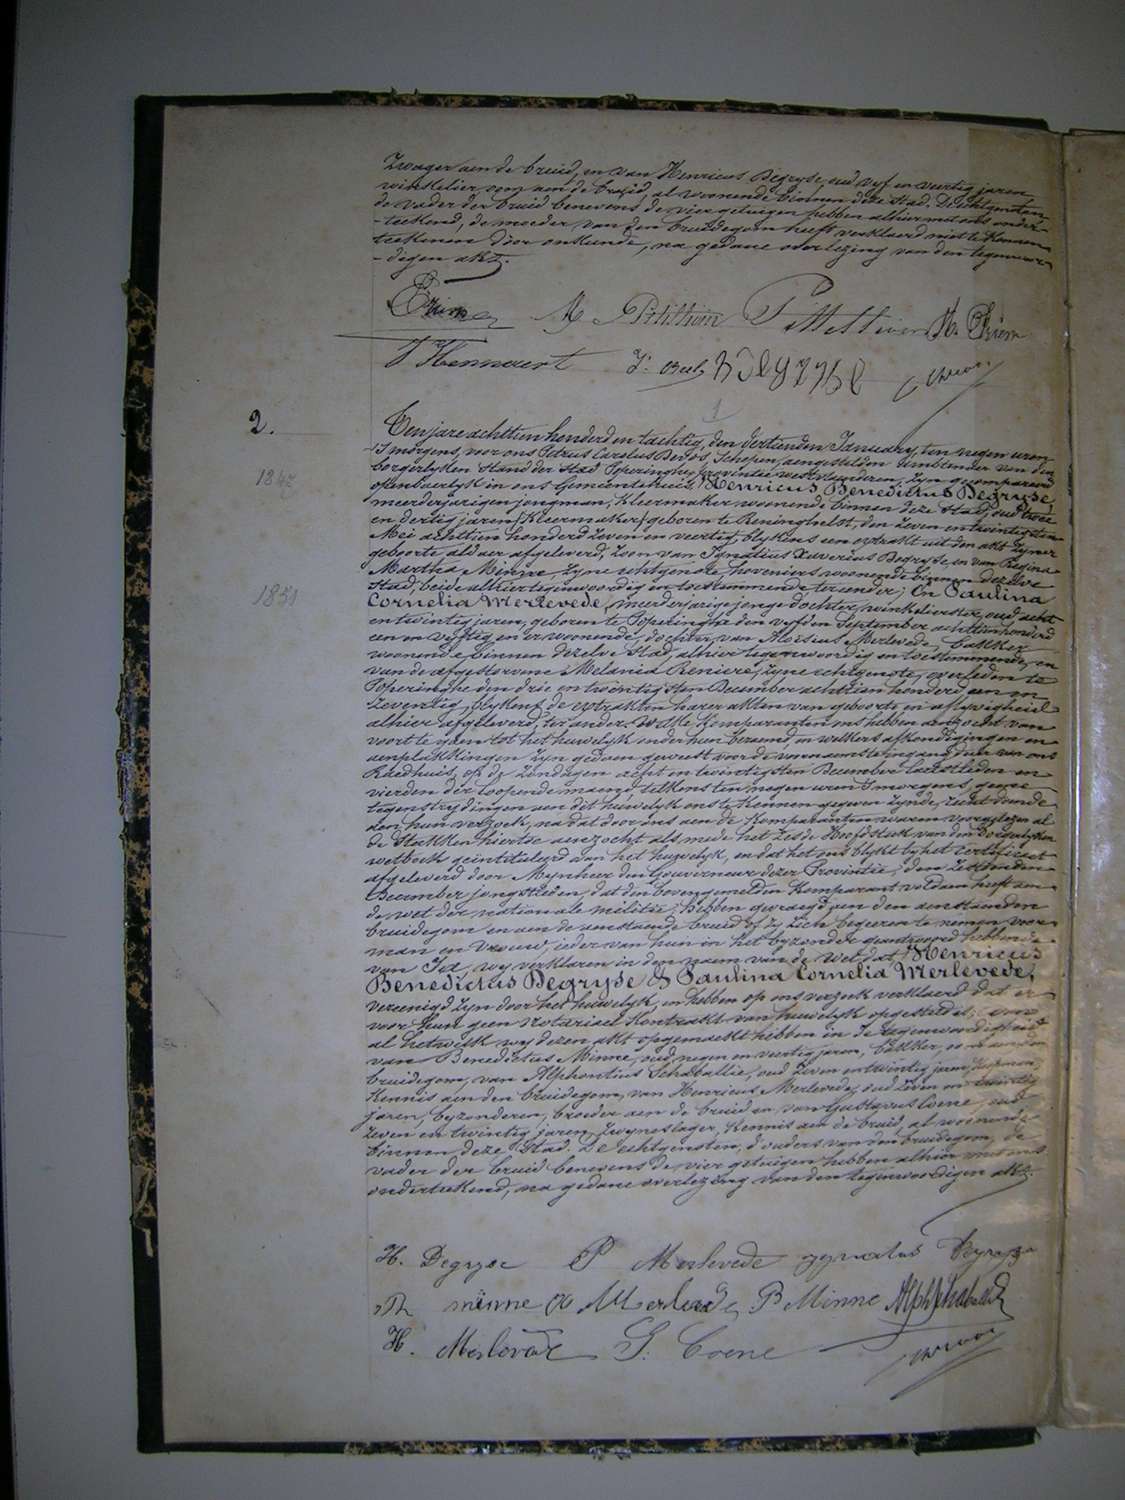 Zwager aen de bruid, en van Henricus Degryse, oud vyf en veertig jaren
winkelier, oom aen de bruid, al woonende binnen deze Stad. De echtgenoten
de vader der bruid benevens de vier getuigen hebben alhier met ons onder-
-teekend, de moeder van den bruidegom heeft verklaerd niet te konnen
teekenen door onkunde, na gedane overlezing van den tegenwoor-
-digen akt.
M Petillion P Metteren H.
J Hennaert
2.
Ten jare achttien honderd en tachtig, den dertienden January, ten negen uren
'S morgens, voor ons Petrus Carolus Schepen, aengestelden Amtenaer van den
borgerlyken Stand der Stad Poperinghe, provintie westvlaenderen, Zyn gecompareerd
openbaerlyk in ons Gemeentehuis, Henricus Benedictus Degryse
1847
meerderjarigen jongman, Kleermaker, woonende binnen deze Stad, oud twee
en dertig jaren (Kleermaker) geboren te Reninghelst, den Zeven en twintigsten
Mei achttien honderd Zeven en veertig, blykens een extrakt uit den akt Zyner
geboorte aldaer afgeleverd, Zoon van Ignatius Xaverius Degryse, en van Regina
Martha Minne, Zyne echtgenote, hoveniers woonende binnen dezelve
Stad, beide alhier tegenwoordig en toestemmende ter eender; En Paulina
1851
Cornelia Merlevede, meerderjarige jonge dochter, winkelierster, oud acht
en twintig jaren, geboren te Poperinghe den vyfden September achttien honderd
een en vyftig en er woonende, dochter van Aloïsius Merlevede, bakker
woonende binnen dezelve Stad, alhier tegenwoordig en toestemmende, en
van de afgestorvene Melania Reniere, Zyne echtgenote, overleden te
Poperinghe den drie en twintigsten December achttien honderd een en
Zeventig, blykens de extrakten harer akten van geboorte en aflyvigheid
alhier afgeleverd, ter ander. Welke Komparanten ons hebben aenzocht van
voort te gaen tot het huwelyk onder hun beraemd, en welkers afkondigingen en
aenplakkingen Zyn gedaen geweest voor de voornaemste ingang deur van ons
Raedhuis, op de Zondagen acht en twintigsten December laetstleden en
vierden der loopende maend, telkens ten negen uren 'S morgens, geene
tegenstrydingen aen dit huwelyk ons te Kennen gegeven Zynde, recht doende
aen hun verzoek, na dat door ons aen de Komparanten waren voorgelezen al
de Stukken hiertoe aenzocht als mede het Zesde Hoofdstuk van den borgerlyken
wetboek geintituleerd van het huwelyk, en dat het ons blykt by het certificaet
afgeleverd door Mynheer den Gouverneur dezer Provintie, den
December jongstleden, dat den bovengemelden Komparant voldaen heeft aen
de wet der nationale militie; Hebben gevraegd aen den aenstaenden
bruidegom en aen de aenstaende bruid of Zy Zich begeeren te nemen voor
man en vrouw, ieder van hun in het byzonder geantwoord hebbende
van Ja, wy verklaren in den naem van de wet, dat Henricus
Benedictus Degryse & Paulina Cornelia Merlevede,
vereenigd Zyn door het huwelyk, en hebben op ons verzoek verklaerd dat er
voor hun geen Notariael Kontrakt van huwelyk opgesteld is; van
al hetwelk wy dezen akt opgemaekt hebben in de tegenwoordigheid
van Benedictus Minne, oud negen en veertig jaren, bakker, oom aen den
bruidegom, van Alphonsius Schaballie, oud Zeven en twintig jaren,
Kennis aen den bruidegom, van Henricus Merlevede, oud Zeven en twintig
jaren, byzonderen, broeder aen de bruid en van Gustavus Coene, oud
Zeven en twintig jaren, Zwynslager, Kennis aen de bruid, al woonende
binnen deze Stad. De echtgenoten, d'ouders van den bruidegom, de
vader der bruid benevens de vier getuigen hebben alhier met ons
onderteekend, na gedane overlezing van den tegenwoordigen akt.
H. Degryse P Merlevede Ignatius Degryse
minne Merlevede B Minne Alph Schaballie
H. Merlevede G. Coene